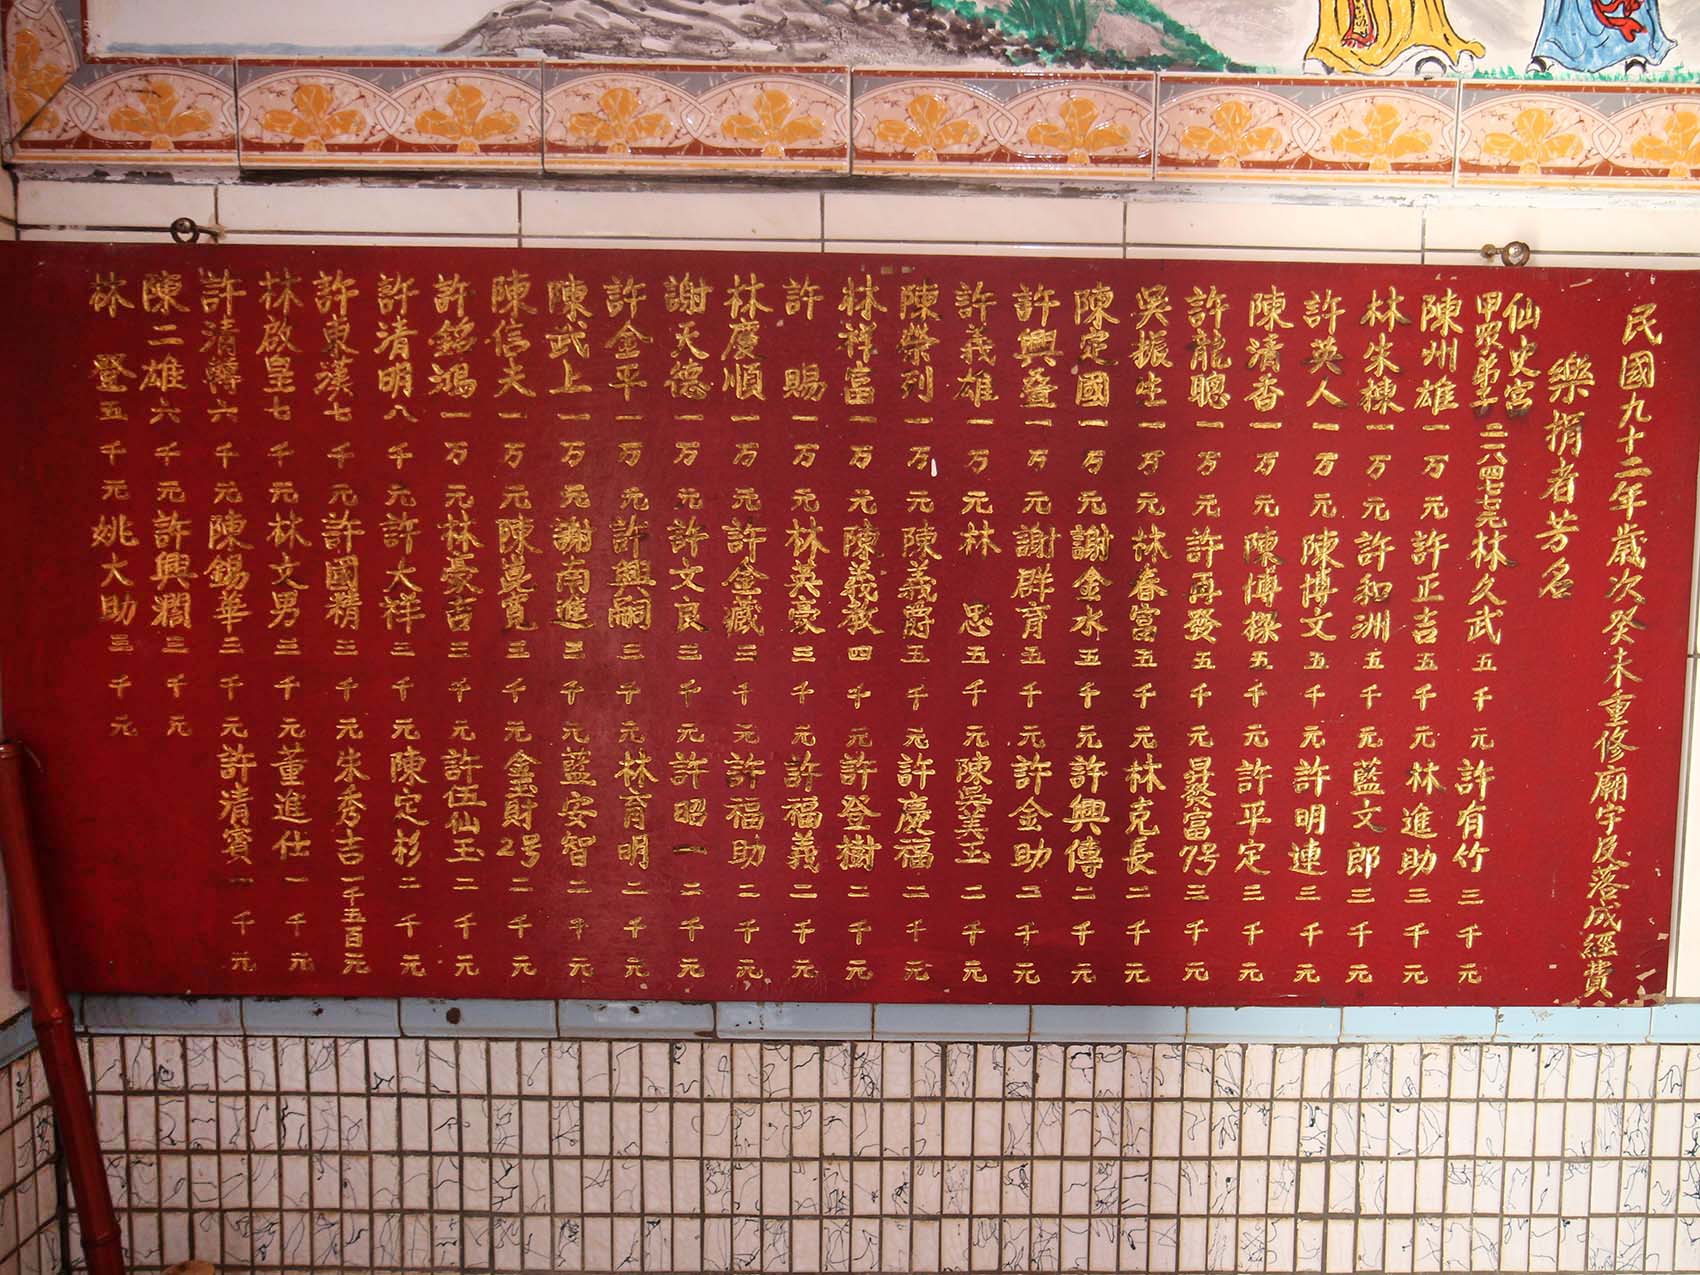 民國九十二年歲次癸未重修廟宇及落成經費
樂捐者芳名
仙史宮
甲眾弟子二六八四七七元林久武五千元許有竹三千元
陳州雄一万元許正吉五千元林進助三千元
林朱棟一万元許和洲五千元藍文郎三千元
許英人一万元陳博文五千元許明連三千元
陳清香一万元陳博操五千元許平定三千元
許龍聰一万元許再發五千元昇發富7号三千元
吳振生一万元林春富五千元林克長二千元
陳定國一万元謝金水五千元許興傳二千元
許興叠一万元謝群育五千元許金助二千元
許義雄一万元林思五千元陳吳美玉二千元
陳榮列一万元陳義爵五千元許慶福二千元
林祥富一万元陳義教四千元許登樹二千元
許賜一万元林英豪三千元許福義二千元
林慶順一万元許金藏三千元許福助二千元
謝天德一万元許文良三千元許昭一二千元
許金平一万元許興嗣三千元林育明二千元
陳武上一万元謝南進三千元藍安智二千元
陳信夫一万元陳崑寬三千元金玉財2号二千元
許銘鴻一万元林豪吉三千元許伍仙玉二千元
許清明八千元許大祥三千元陳定杉二千元
許東漢七千元許國精三千元朱秀吉一千五百元
林啟皇七千元林文男三千元董進仕一千元
許清溥六千元陳錫華三千元許清賓一千元
陳二雄六千元許興瀾三千元
林登五千元姚大助三千元